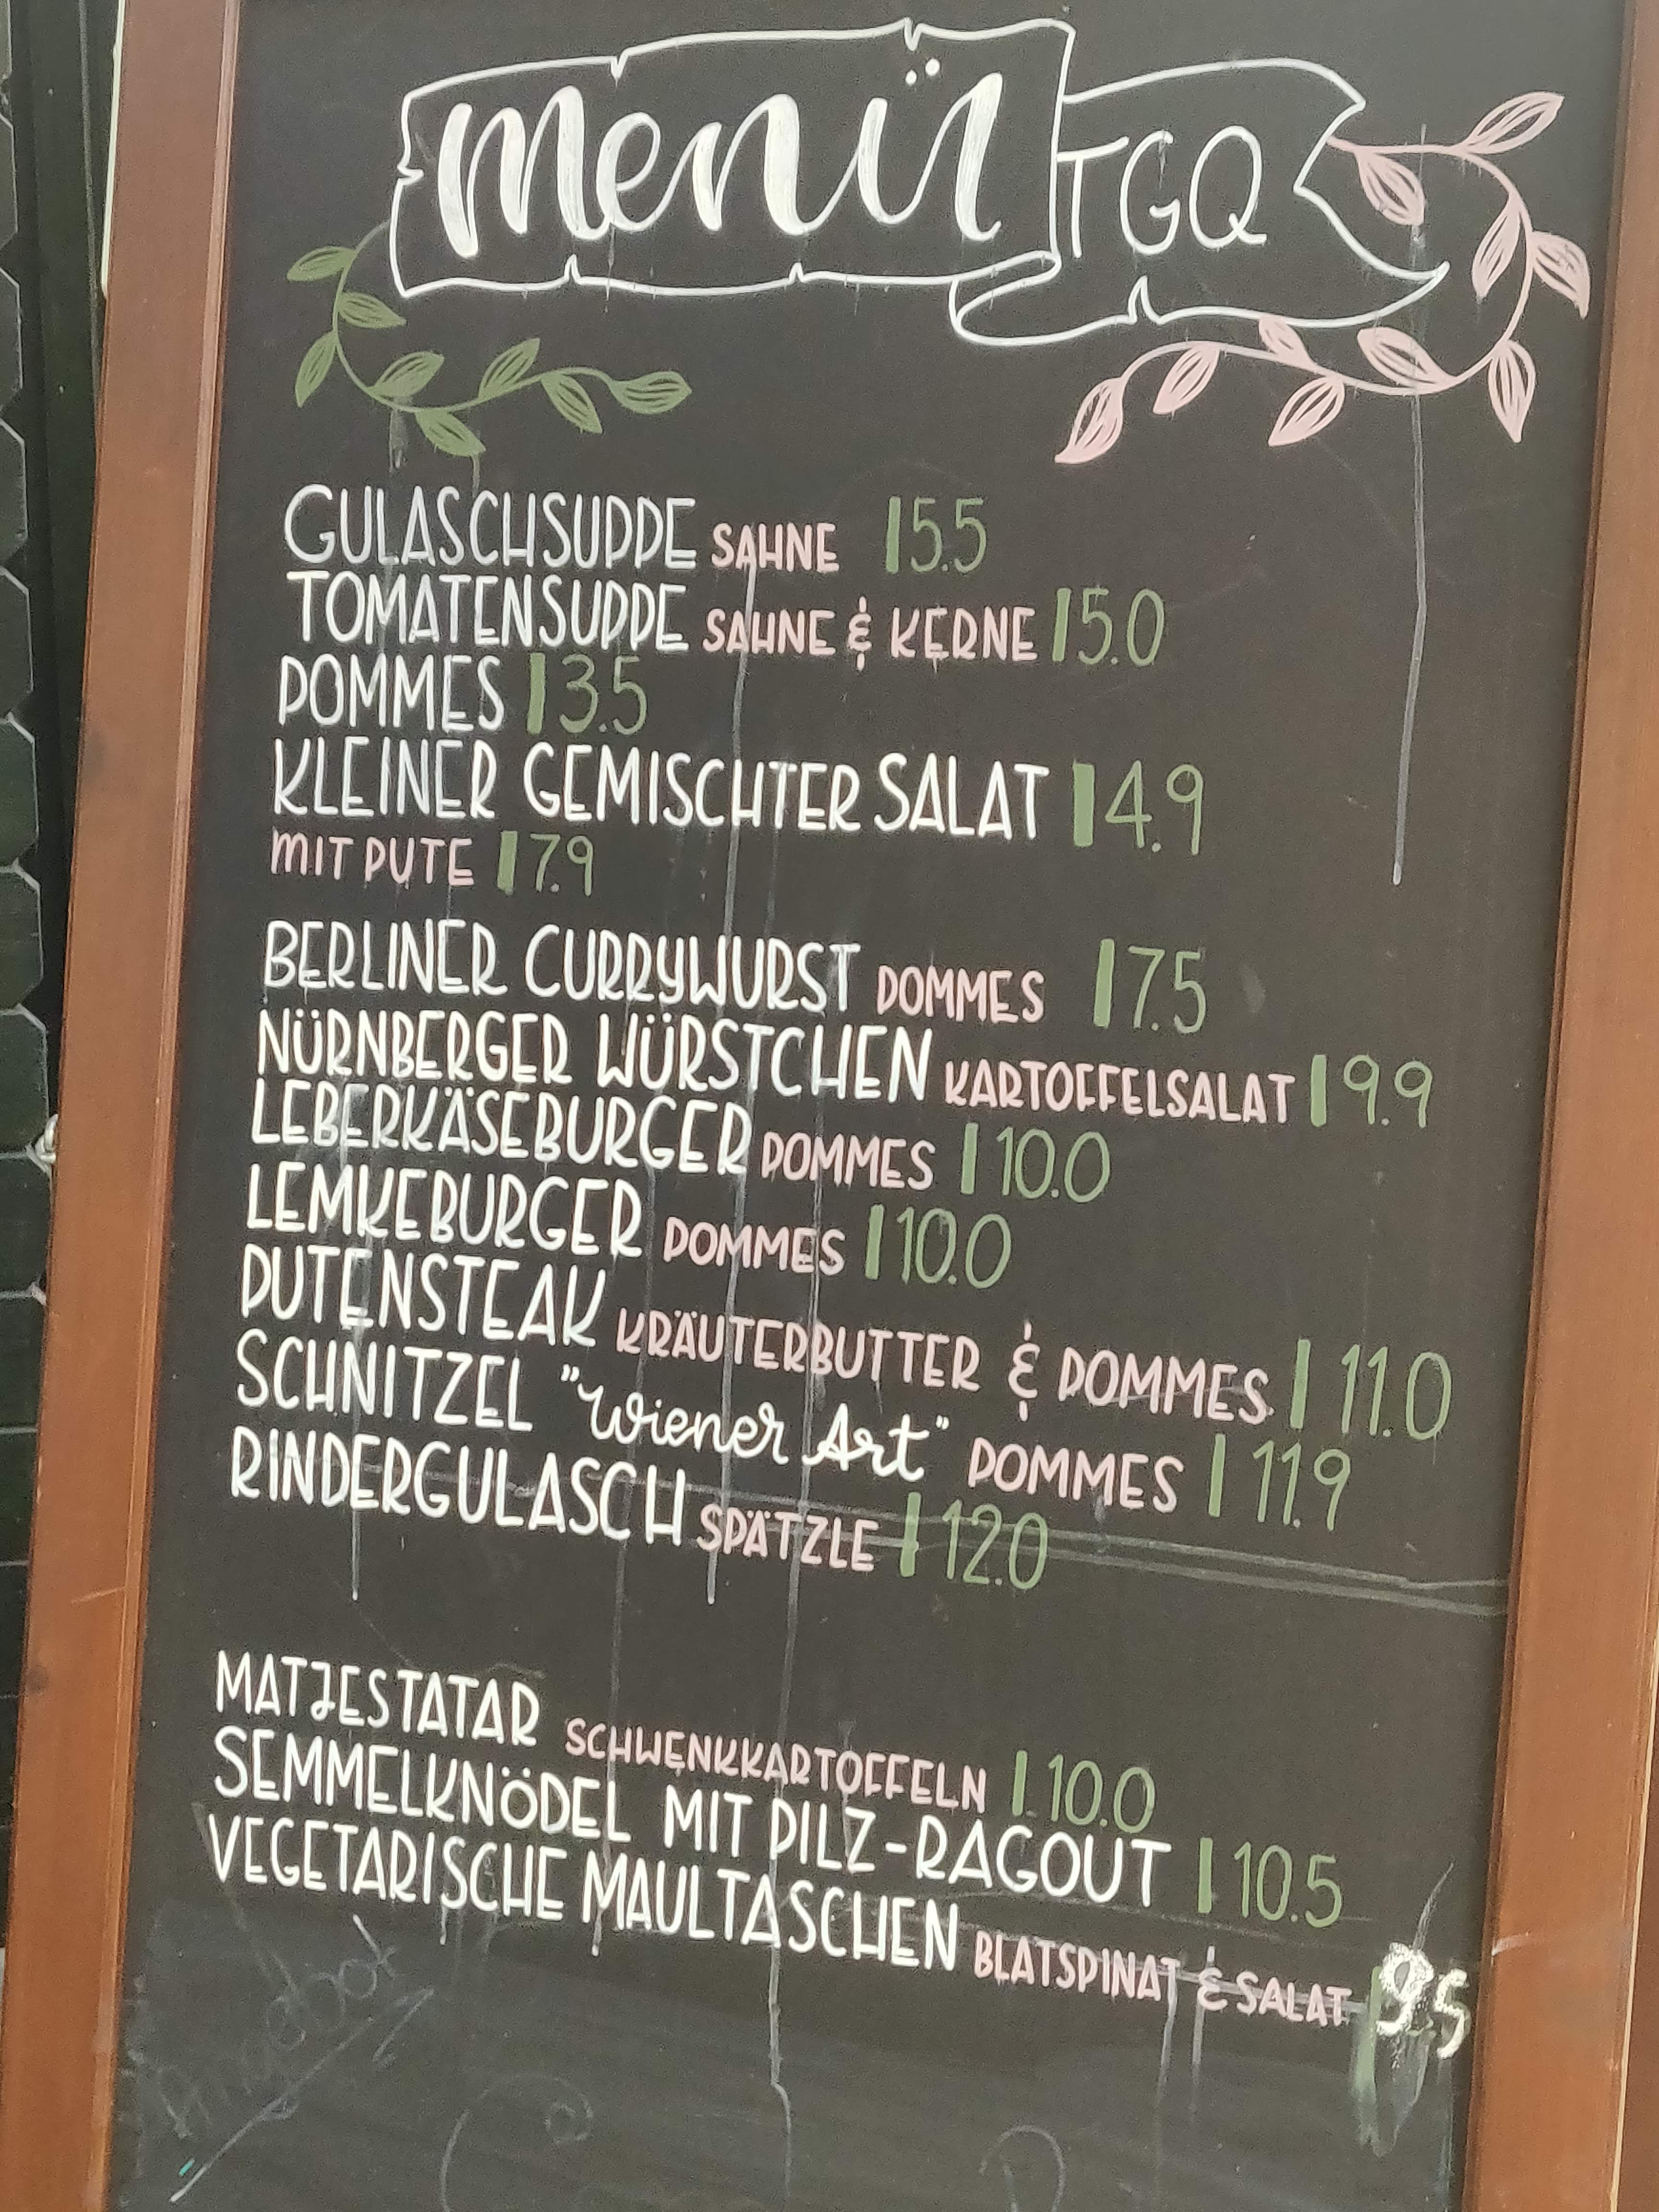 menü TGQ
GULASCHSUPPE SAHNE | 5.5
TOMATENSUPPE SAHNE & KERNE | 5.0
POMMES | 3.5
KLEINER GEMISCHTER SALAT | 4.9
MIT PUTE | 7.9
BERLINER CURRYWURST POMMES | 7.5
NÜRNBERGER WÜRSTCHEN KARTOFFELSALAT | 9.9
LEBERKÄSEBURGER POMMES | 10.0
LEMKEBURGER POMMES | 10.0
PUTENSTEAK KRÄUTERBUTTER & POMMES | 11.0
SCHNITZEL "Wiener Art" POMMES | 11.9
RINDERGULASCH SPÄTZLE | 12.0
MATJESTATAR SCHWENKKARTOFFELN | 10.0
SEMMELKNÖDEL MIT PILZ-RAGOUT | 10.5
VEGETARISCHE MAULTASCHEN BLATSPINAT & SALAT | 9.5